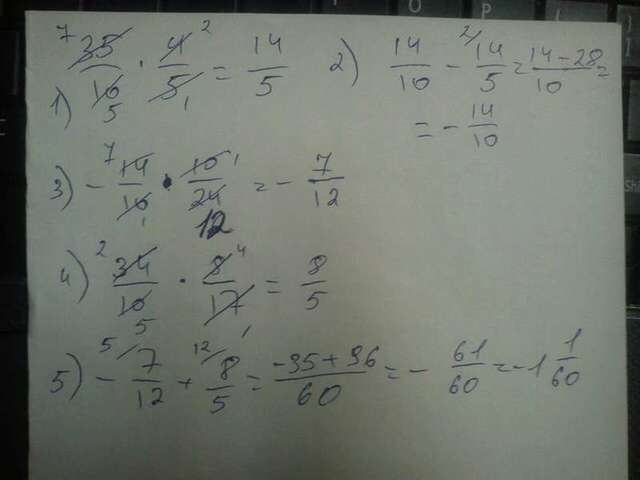 1) 35/10 · 4/5 = 14/5
2) 14/10 - 14/5 = 14-28/10 =
= - 14/10
3) - 14/10 · 10/24 = - 7/12
4) 34/10 · 8/17 = 8/5
5) - 7/12 + 8/5 = -35+96/60 = - 61/60 = -1 1/60